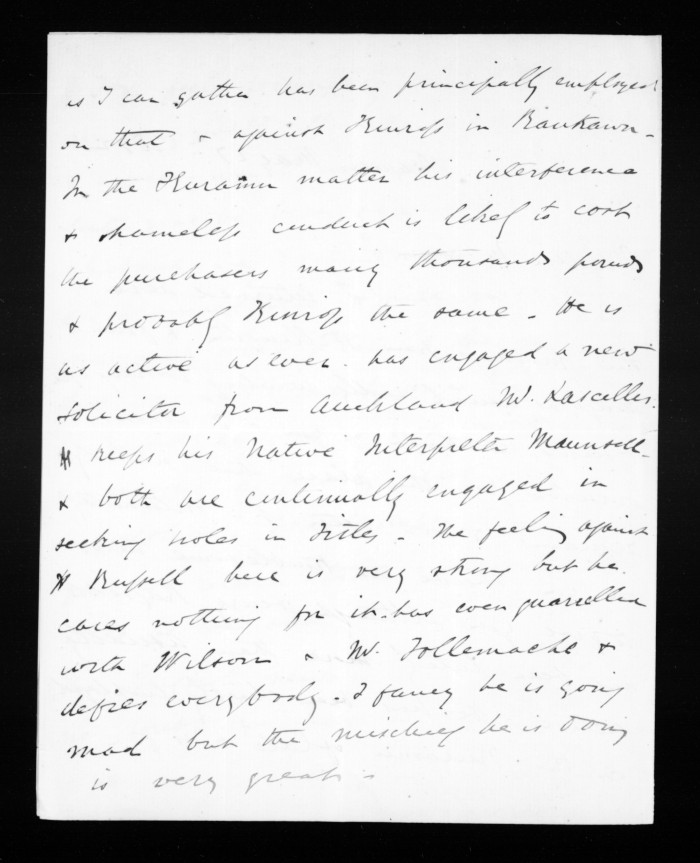 as I can gather has been principally employed
on that & against Kinross in Raukawa -
In the Kuramu matter his interference
& shameless conduct is likely to cost
the purchasers many thousands pounds
& probably Kinross the same - He is
as active as ever. has engaged a new
solicitor from Auckland Mr. Lascelles.
H keeps his Native Interpreter Maunsell -
& both are continually engaged in
seeking holes in Titles - The feeling against
H Russell here is very strong but he
cares nothing for it - has even quarrelled
with Wilson & Mr. Tollemache &
defies everybody - I fancy he is going
mad but the mischief he is doing
is very great -